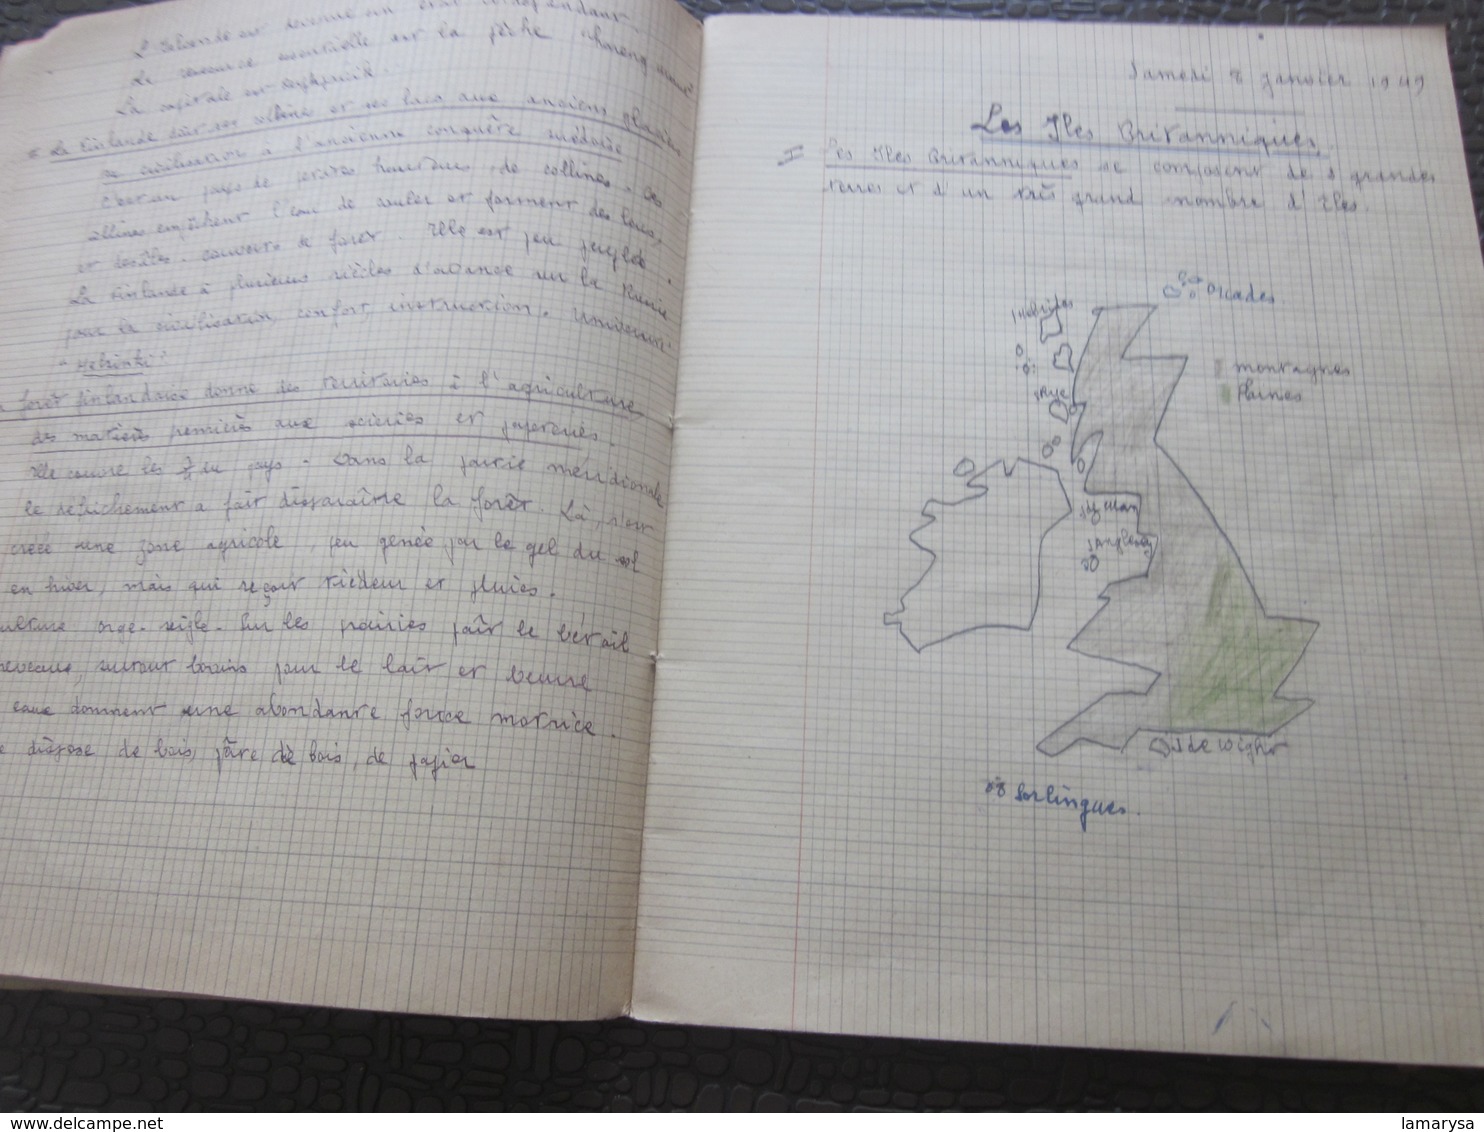 L'Islande est devenue un état indépendant.
La ressource essentielle est la pêche (hareng morue)
La capitale est Reykjavik.
La Finlande doit ses collines et ses lacs aux anciens glaciers
sa civilisation à l'ancienne conquête suédoise
C'est un pays de terres, de collines. Ces
collines empêchent l'eau de couler et forment des lacs,
et des îles couverts de forêt. Elle est peu peuplée.
La Finlande à plusieurs siècles d'avance sur la Russie
pour la civilisation, confort, instruction. Université
"Helsinki"
forêt finlandaise donne des territoires à l'agriculture
des matières premières aux scieries et papeteries.
elle couvre les du pays. Dans la partie méridionale
le défrichement a fait disparaître la forêt. Là, s'est
créée une zone agricole, peu gênée par le gel du sol
en hiver, mais qui reçoit tiédeur et pluies.
orge. seigle. Sur les prairies paît le bétail
surtout bovins pour le lait et beurre
eaux donnent une abondante force motrice.
dispose de bois, pâte de bois, de papier
Samedi 8 Janvier 1949
Les Iles Britanniques.
I Les Iles Britanniques se composent de 2 grandes
terres et d'un très grand nombre d'îles.
Orcades
I Hébrides
montagnes
Plaines
I Skye
I of man
I Anglesey
I de Wight
Sorlingues.
© www.delcampe.net
lamarysa